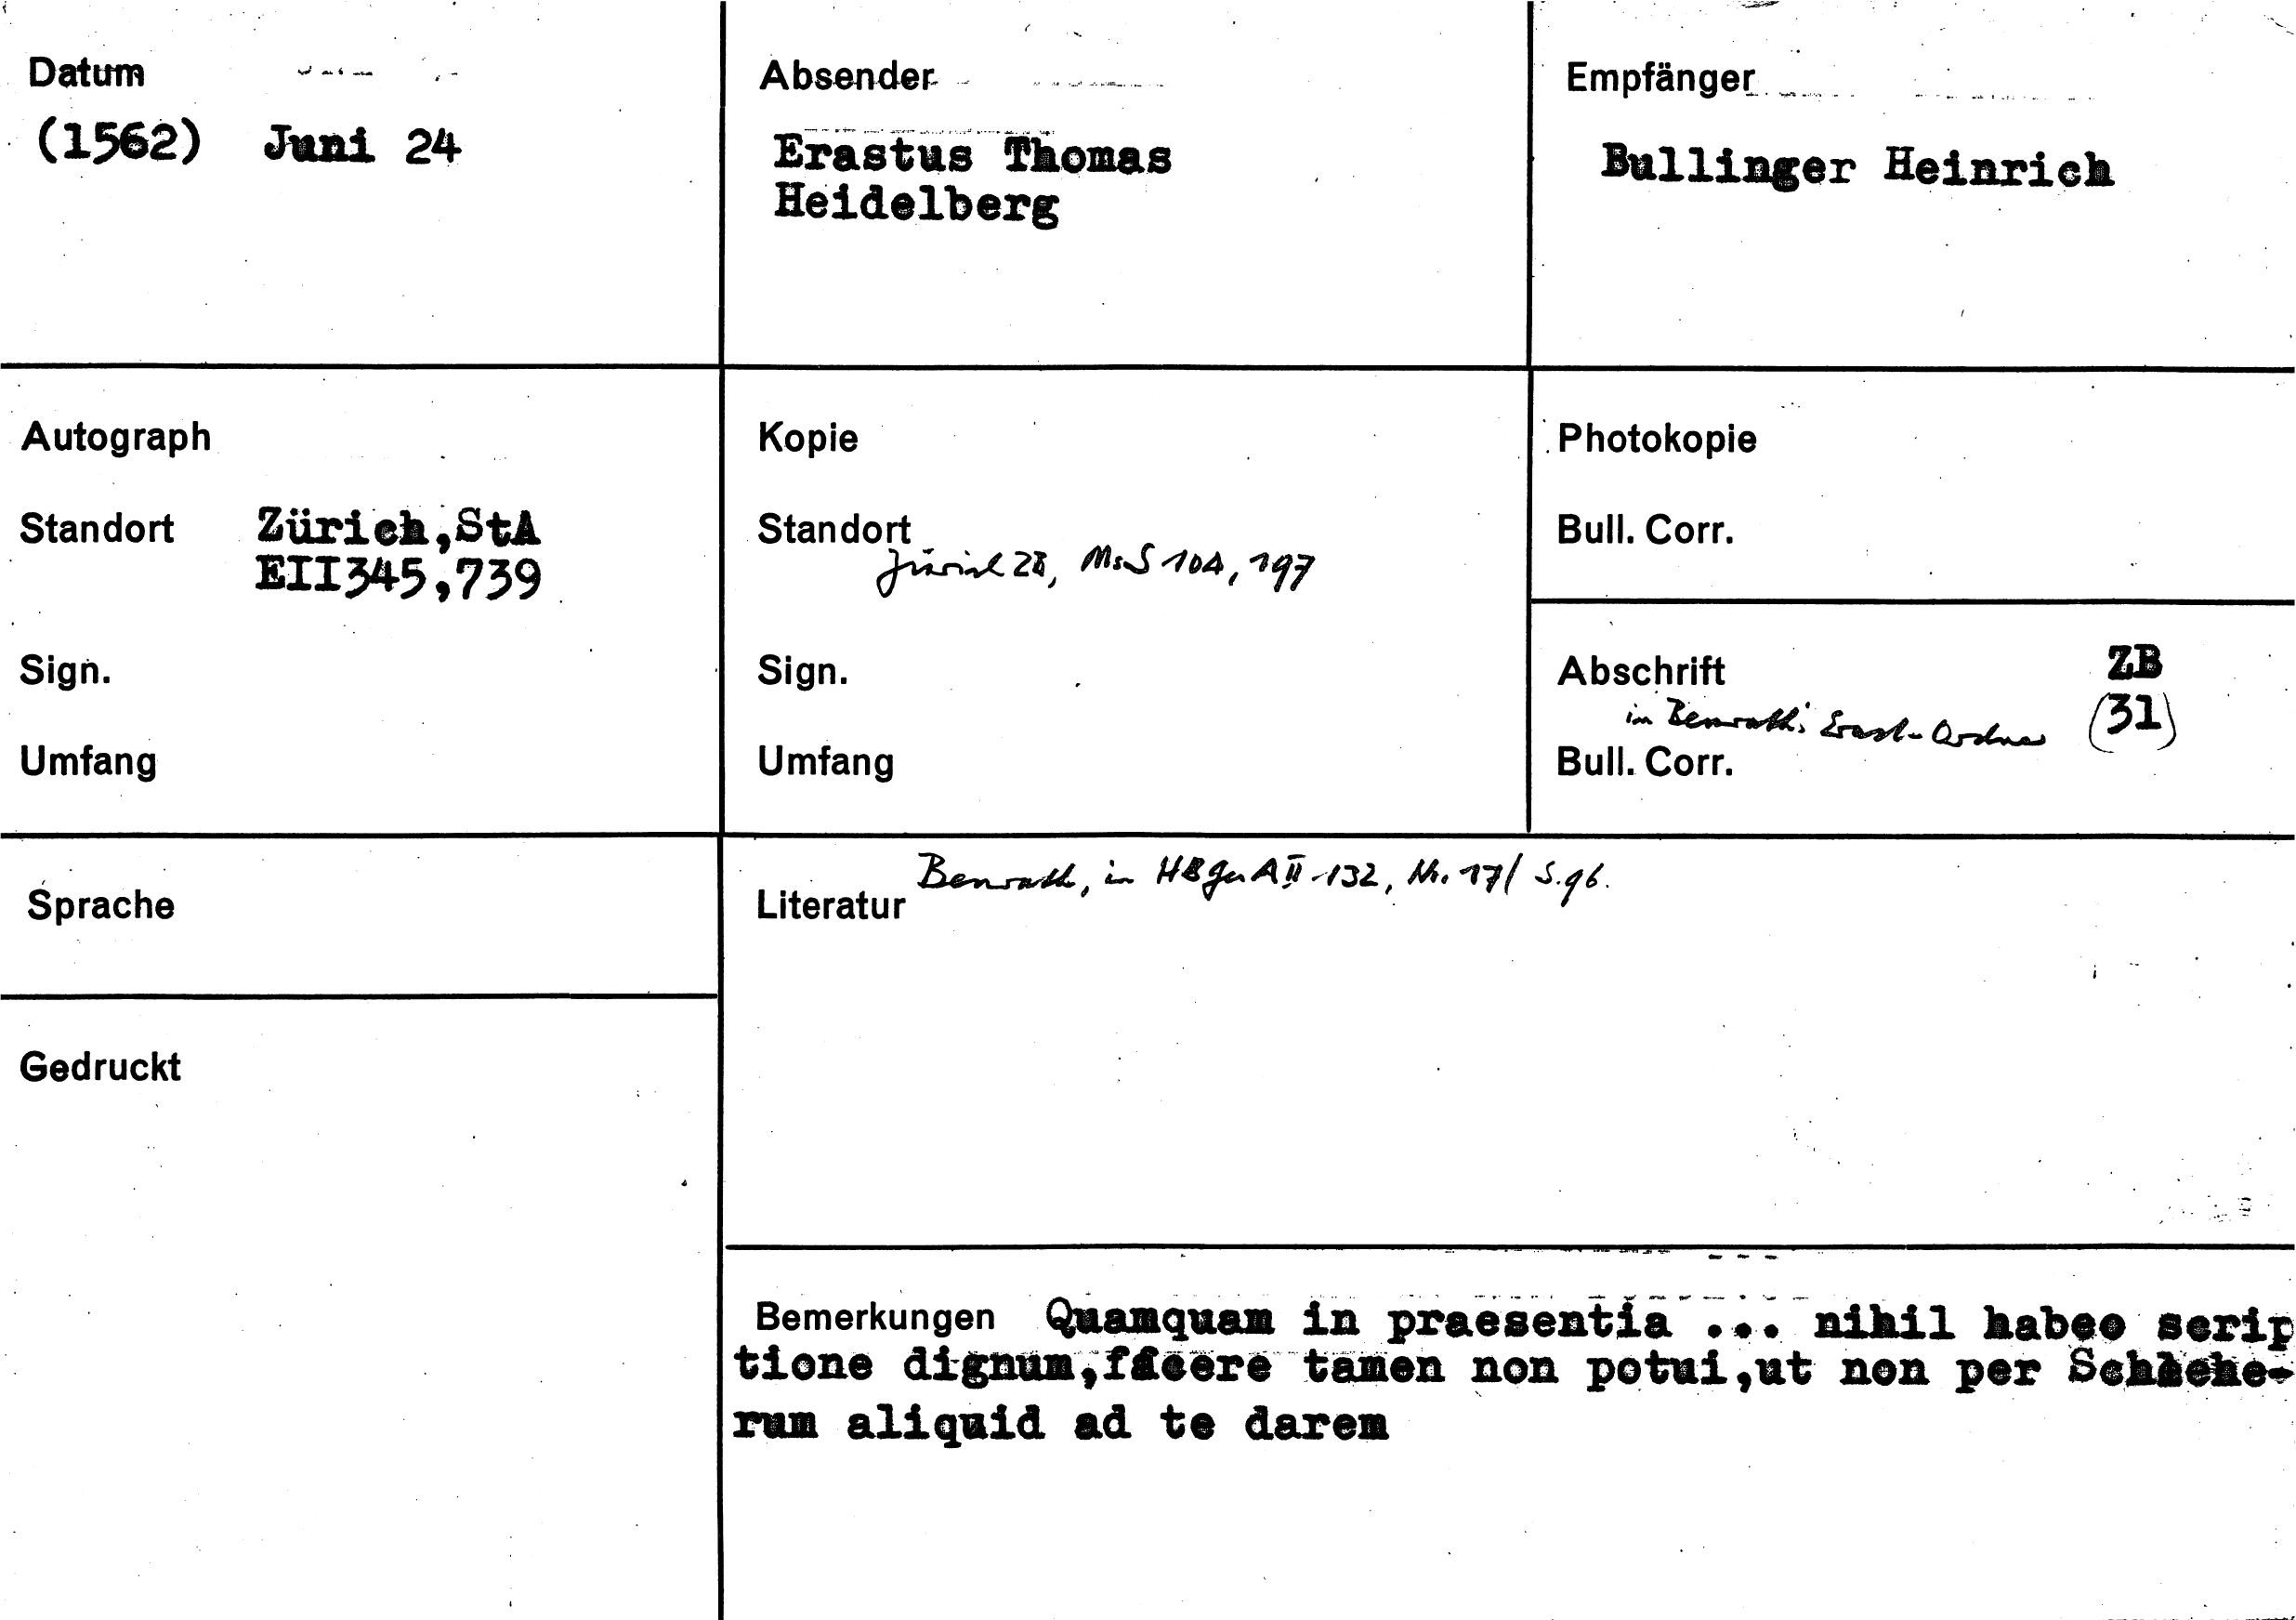 Datum
(1562) Juni 24
Absender
Erastus Thomas
Heidelberg
Empfänger
Bullinger Heinrich
Autograph
Standort Zürich,StA
EII345,739
Sign.
Umfang
Kopie
Standort
Zürich ZB, Ms S 104, 197
Sign.
Umfang
Photokopie
Bull. Corr.
Abschrift ZB
in Benrath's Erast-Ordner (31)
Bull. Corr.
Sprache
Gedruckt
Benrath, in HBGesA II 132, Nr. 17/ S.96.
Literatur
Bemerkungen Quamquam in praesentia ... nihil habeo scrip
tione dignum,facere tamen non potui,ut non per Schäche-
rum aliquid ad te darem